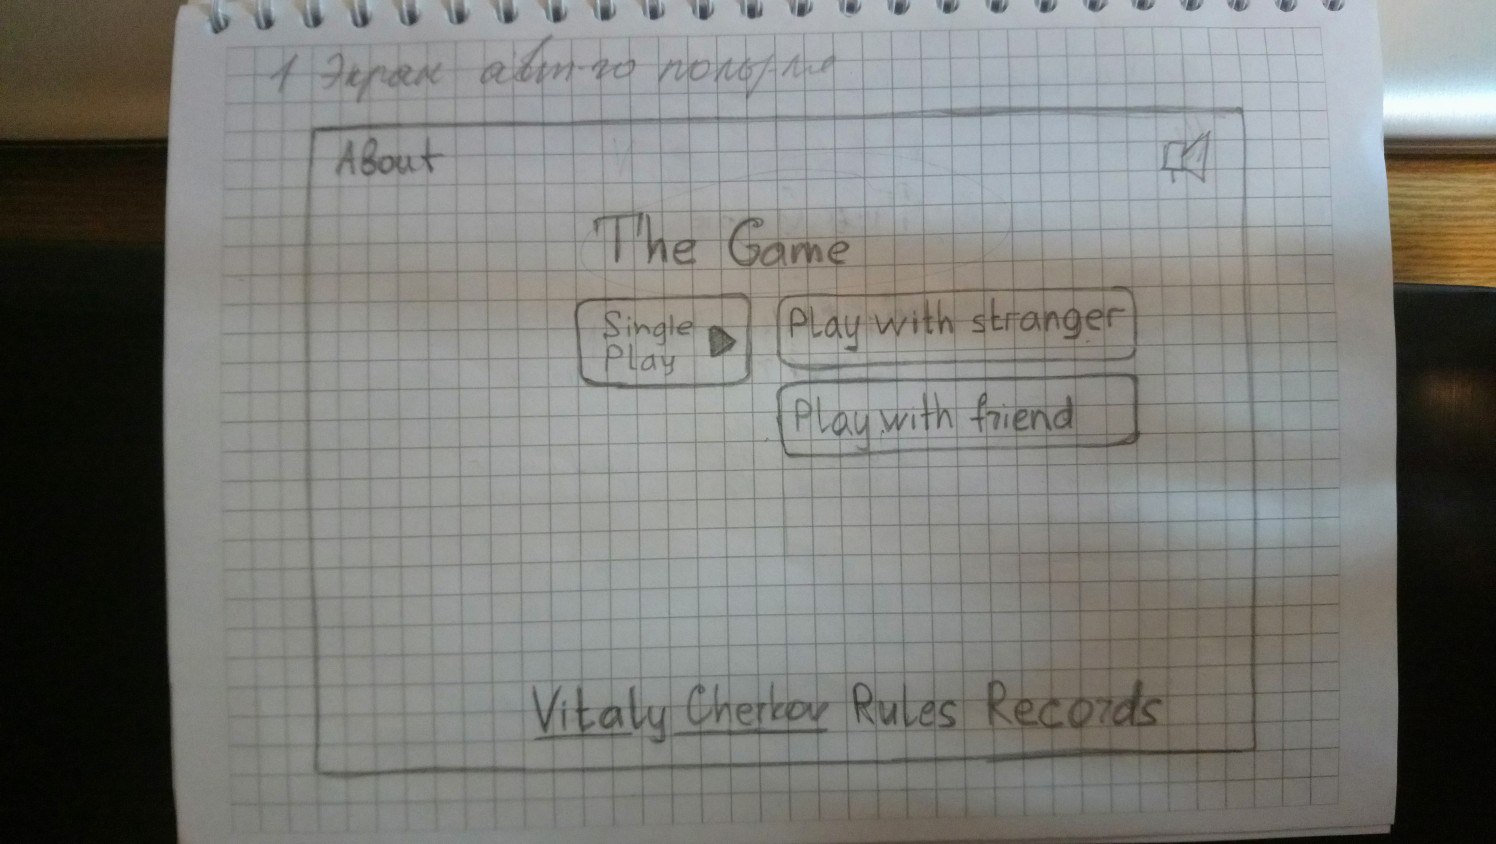 1 Экран авт-го польз-ля
About
The Game
Single
Play
Play with stranger
Play with friend
Vitaly Cherkov Rules Records